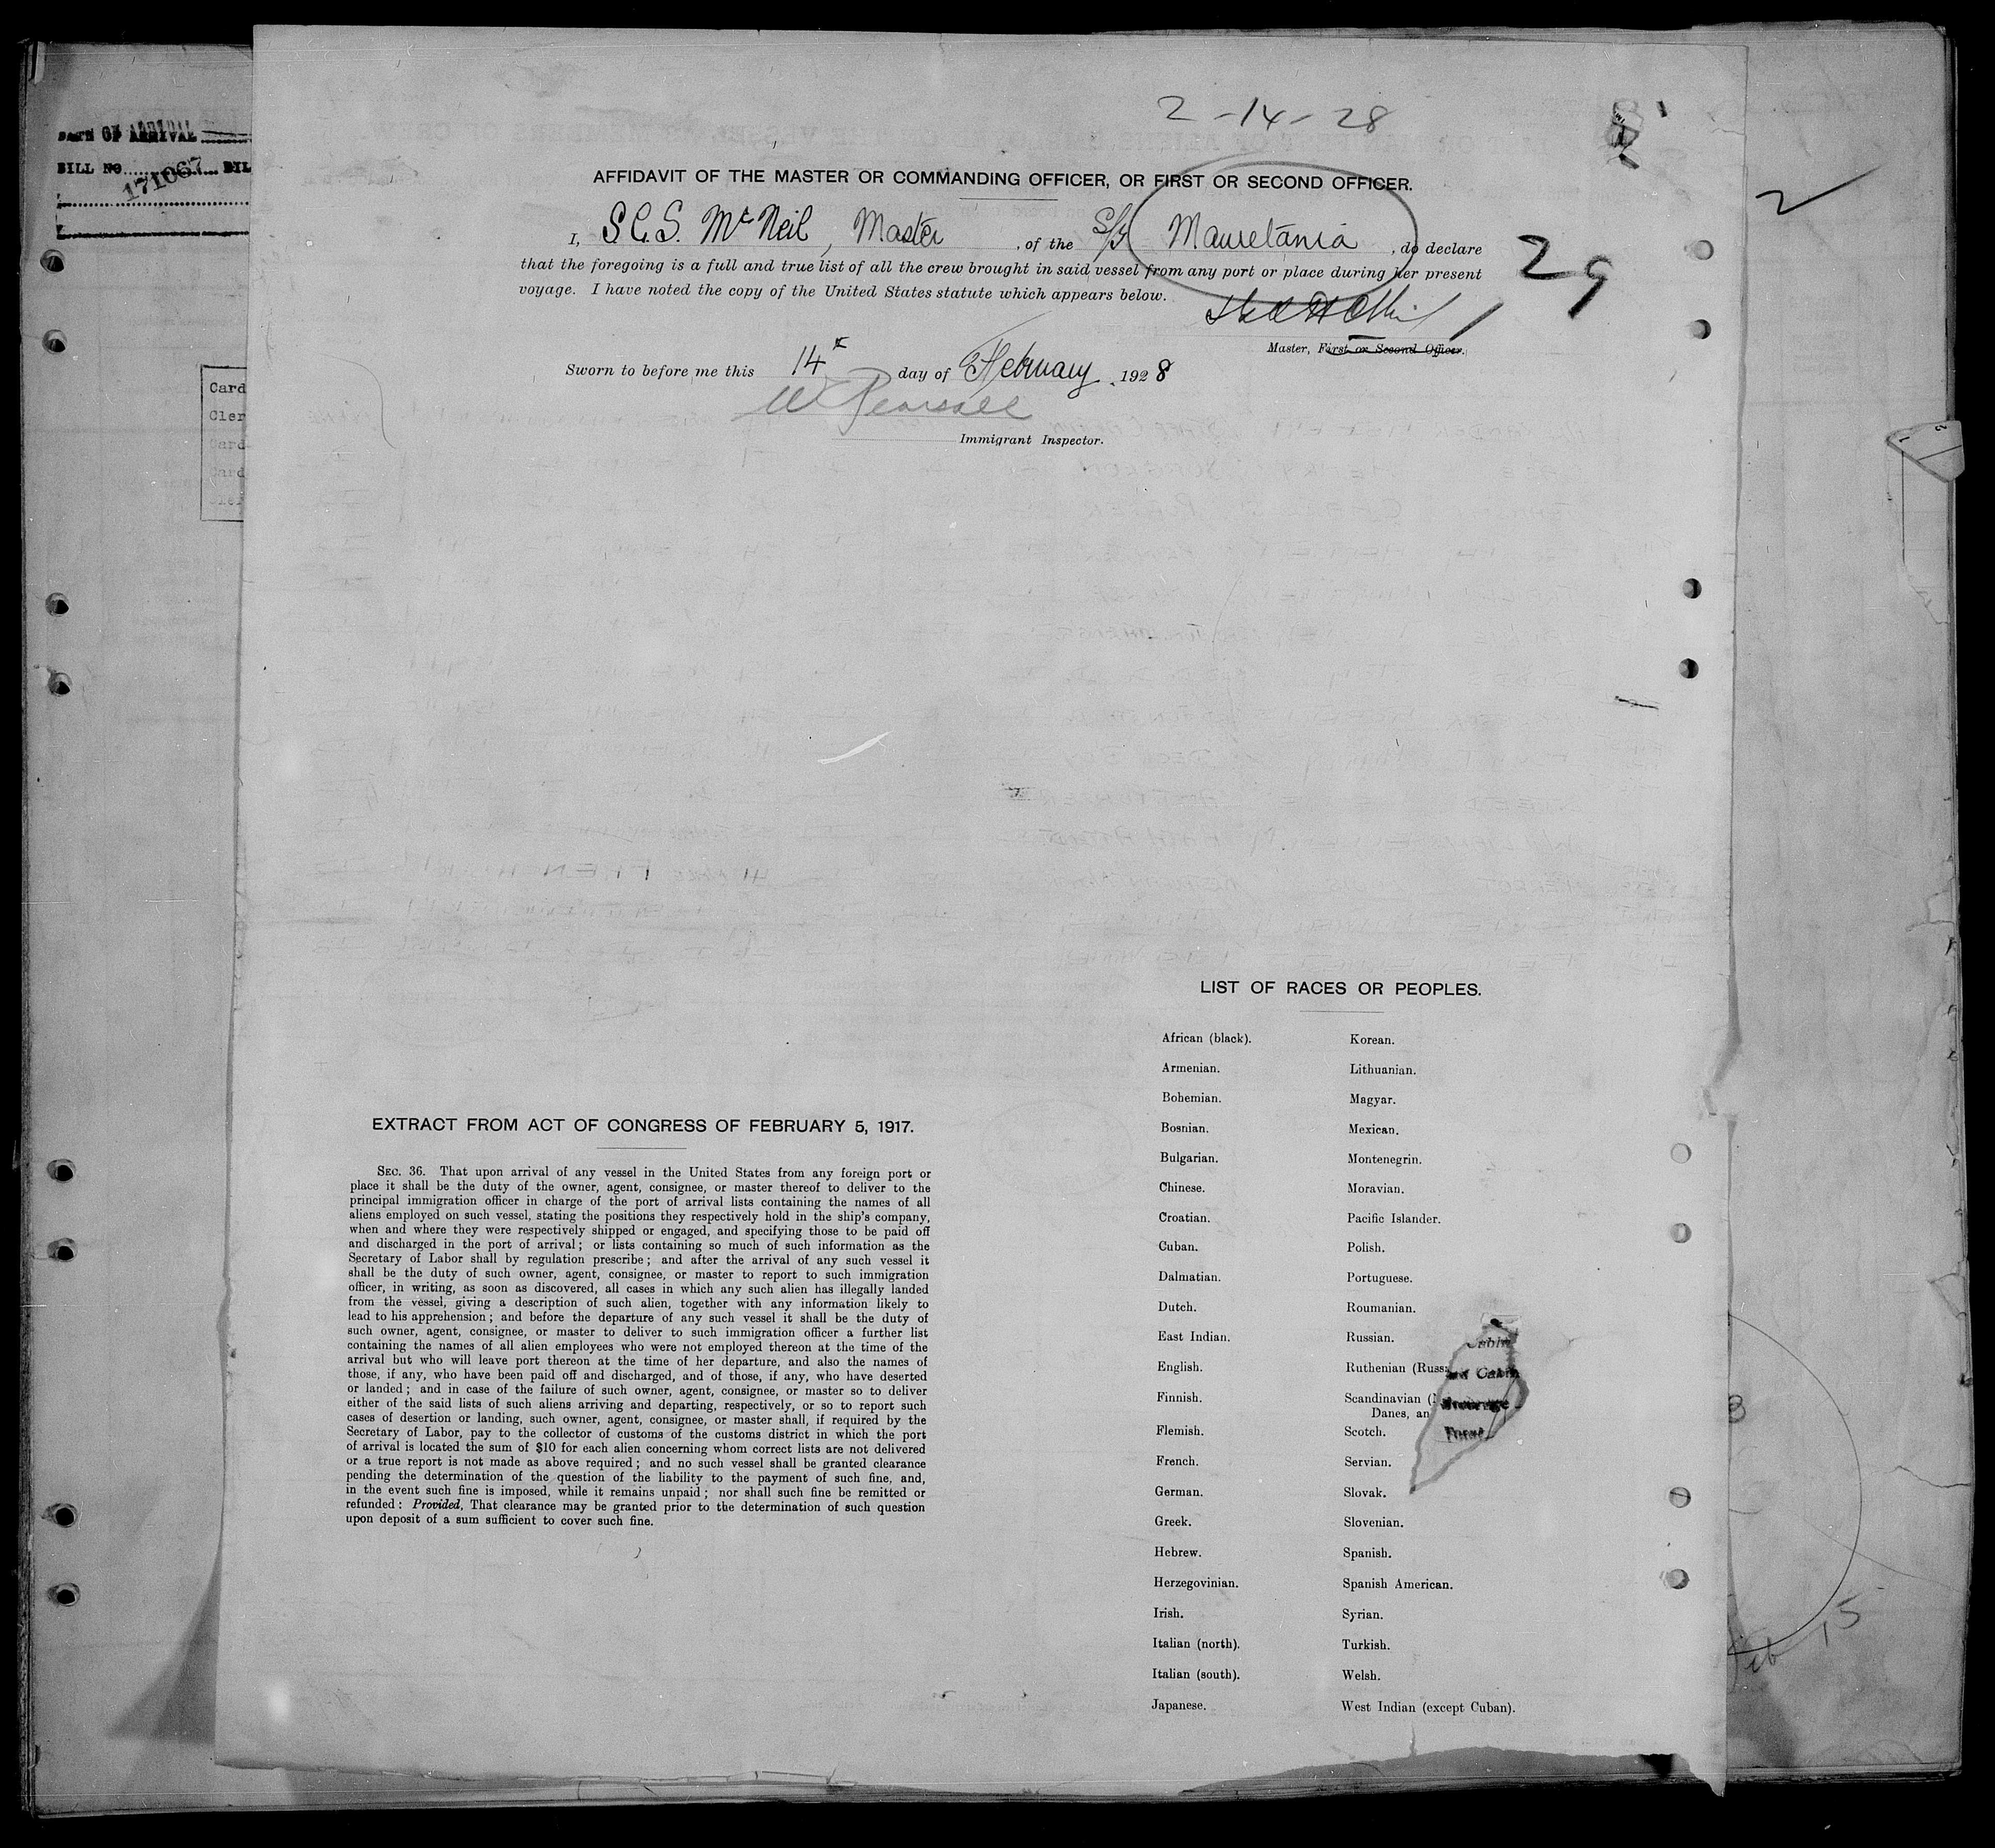 2-14-28
DATE OF ARRIVAL
BILL NO. 171067
2
AFFIDAVIT OF THE MASTER OR COMMANDING OFFICER, OR FIRST OR SECOND OFFICER.
I, S.G.S. McNeil, Master, of the S/S Mauretania, do declare
that the foregoing is a full and true list of all the crew brought in said vessel from any port or place during her present
voyage. I have noted the copy of the United States statute which appears below.
29
Master, First or Second Officer.
Sworn to before me this 14th day of February, 1928
W Pearsall
Immigrant Inspector.
Card
Cler
Card
Card
EXTRACT FROM ACT OF CONGRESS OF FEBRUARY 5, 1917.
SEC. 36. That upon arrival of any vessel in the United States from any foreign port or
place it shall be the duty of the owner, agent, consignee, or master thereof to deliver to the
principal immigration officer in charge of the port of arrival lists containing the names of all
aliens employed on such vessel, stating the positions they respectively hold in the ship's company,
when and where they were respectively shipped or engaged, and specifying those to be paid off
and discharged in the port of arrival; or lists containing so much of such information as the
Secretary of Labor shall by regulation prescribe; and after the arrival of any such vessel it
shall be the duty of such owner, agent, consignee, or master to report to such immigration
officer, in writing, as soon as discovered, all cases in which any such alien has illegally landed
from the vessel, giving a description of such alien, together with any information likely to
lead to his apprehension; and before the departure of any such vessel it shall be the duty of
such owner, agent, consignee, or master to deliver to such immigration officer a further list
containing the names of all alien employees who were not employed thereon at the time of the
arrival but who will leave port thereon at the time of her departure, and also the names of
those, if any, who have been paid off and discharged, and of those, if any, who have deserted
or landed; and in case of the failure of such owner, agent, consignee, or master so to deliver
either of the said lists of such aliens arriving and departing, respectively, or so to report such
cases of desertion or landing, such owner, agent, consignee, or master shall, if required by the
Secretary of Labor, pay to the collector of customs of the customs district in which the port
of arrival is located the sum of $10 for each alien concerning whom correct lists are not delivered
or a true report is not made as above required; and no such vessel shall be granted clearance
pending the determination of the question of the liability to the payment of such fine, and,
in the event such fine is imposed, while it remains unpaid; nor shall such fine be remitted or
refunded: Provided, That clearance may be granted prior to the determination of such question
upon deposit of a sum sufficient to cover such fine.
LIST OF RACES OR PEOPLES.
African (black).
Armenian.
Bohemian.
Bosnian.
Bulgarian.
Chinese.
Croatian.
Cuban.
Dalmatian.
Dutch.
East Indian.
English.
Finnish.
Flemish.
French.
German.
Greek.
Hebrew.
Herzegovinian.
Irish.
Italian (north).
Italian (south).
Japanese.
Korean.
Lithuanian.
Magyar.
Mexican.
Montenegrin.
Moravian.
Pacific Islander.
Polish.
Portuguese.
Roumanian.
Russian.
Ruthenian (Russ
Scandinavian (
Danes, an
Scotch.
Servian.
Slovak.
Slovenian.
Spanish.
Spanish American.
Syrian.
Turkish.
Welsh.
West Indian (except Cuban).
Cabin
Steerage
Total
15